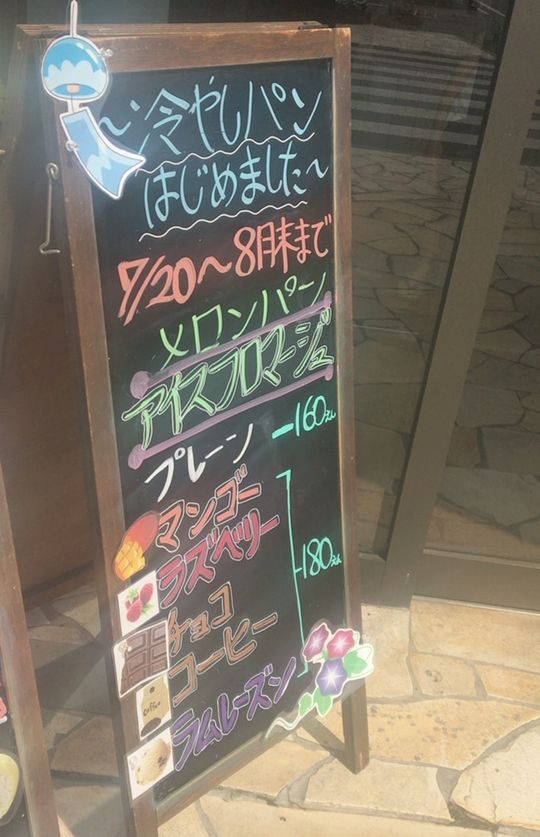 ~冷やしパン
はじめました~
7/20~8月末まで
メロンパン
アイスフロマージュ
プレーン ー160えん
マンゴー
ラズベリー
180えん
チョコ
コーヒー
coffee
ラムレーズン